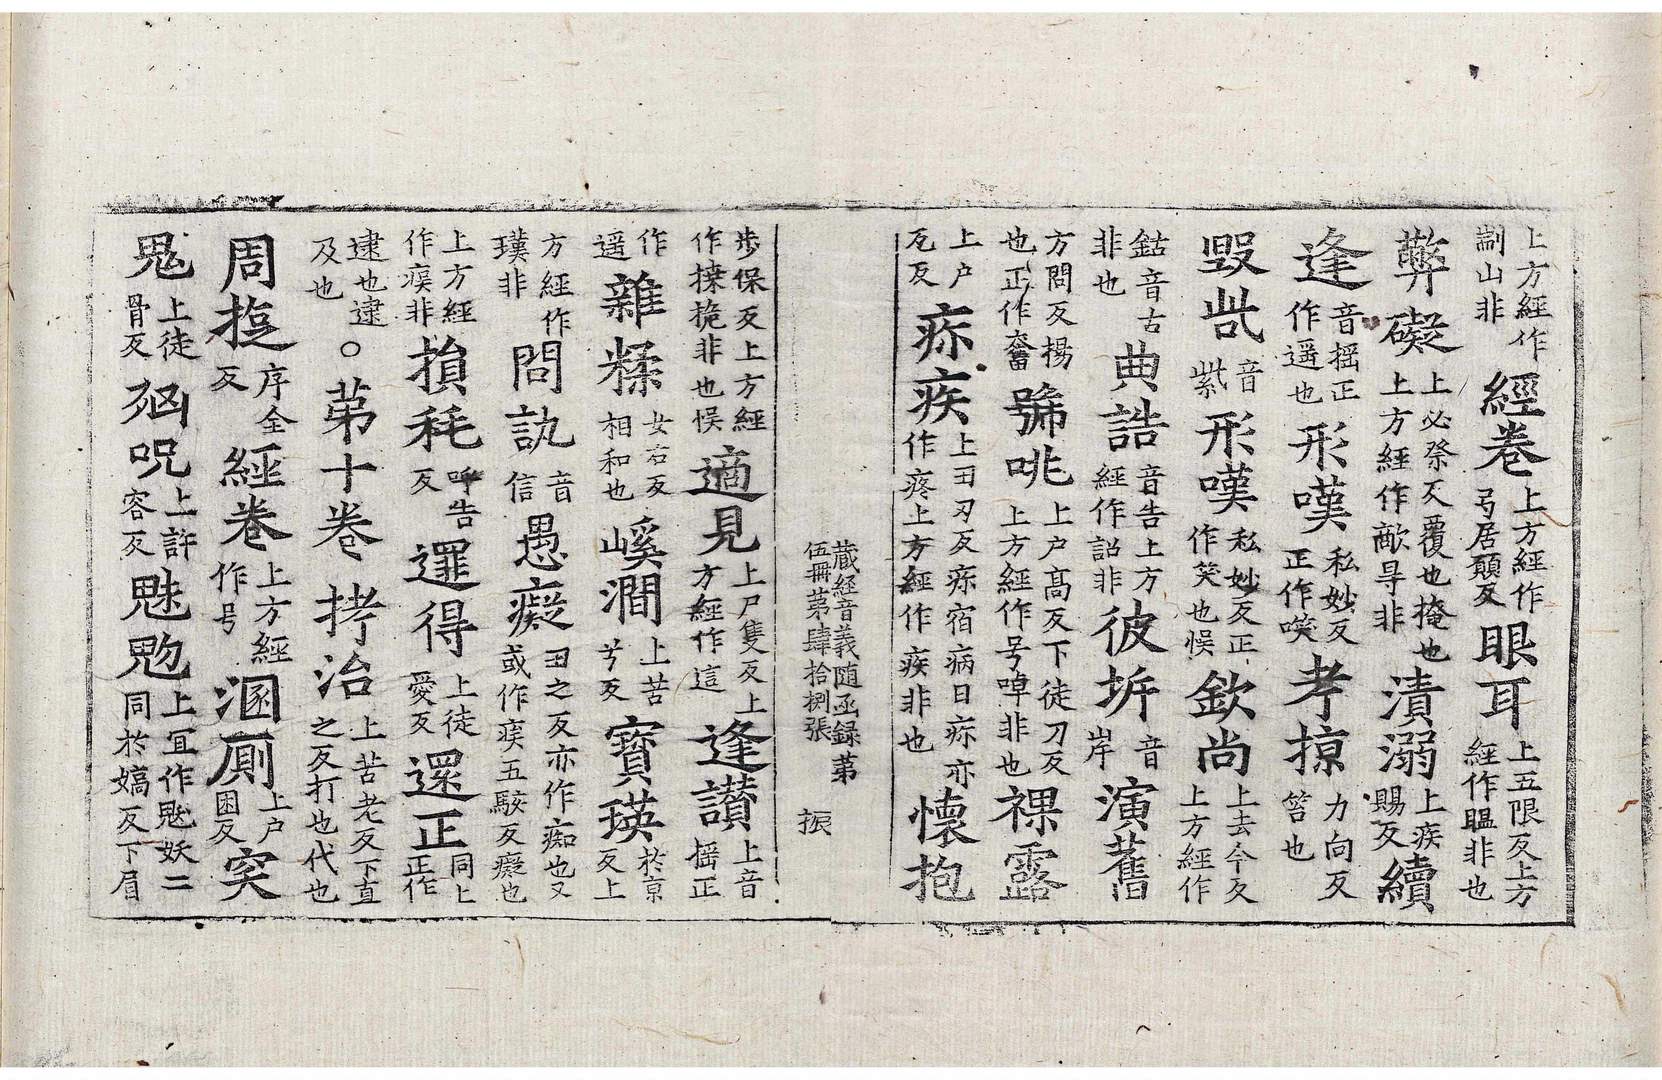 上方經作剬山非經卷上方經作弓居願反眼耳上五限反上方經作䀛非也
弊礙上必祭反覆也掩也上方經作敵㝵非漬溺上疾賜反續
逢音揺正作遥也形嘆私妙反正作唉考掠力向反笞也
毀呰音紫形嘆私妙反正作笑也悮欽尚上去今反上方經作
鈷音古非也典誥音告上方經作詔非彼坼音岸演舊
方問反揚也正作奮號咷上户髙反下徒刀反上方經作号啅非也祼露
上户瓦反疢疾上丑刃反疢宿病日疢亦作疼上方經作疾非也懷抱
藏經音義随函録苐伍冊苐肆拾捌張 振
步保反上方經作㨶㧪非也悮適見上尸隻反上方經作這逢讃上音揺正
作遥雜糅女右反相和也嵠澗上苦兮反寳瑛於京反上
方經作璞非問訙音信愚癡丑之反亦作痴也又或作㾕五駮反癡也
上方經作㾕非損秏呼告反還得上徒愛反還正同上正作
逮也逮及也○苐十卷拷治上苦老反下直之反打也代也
周㨗序全反經卷上方經作号溷廁上户困反突
鬼上徒骨反殈呪上許容反魅魩上冝作魅妖二同於嬌反下眉